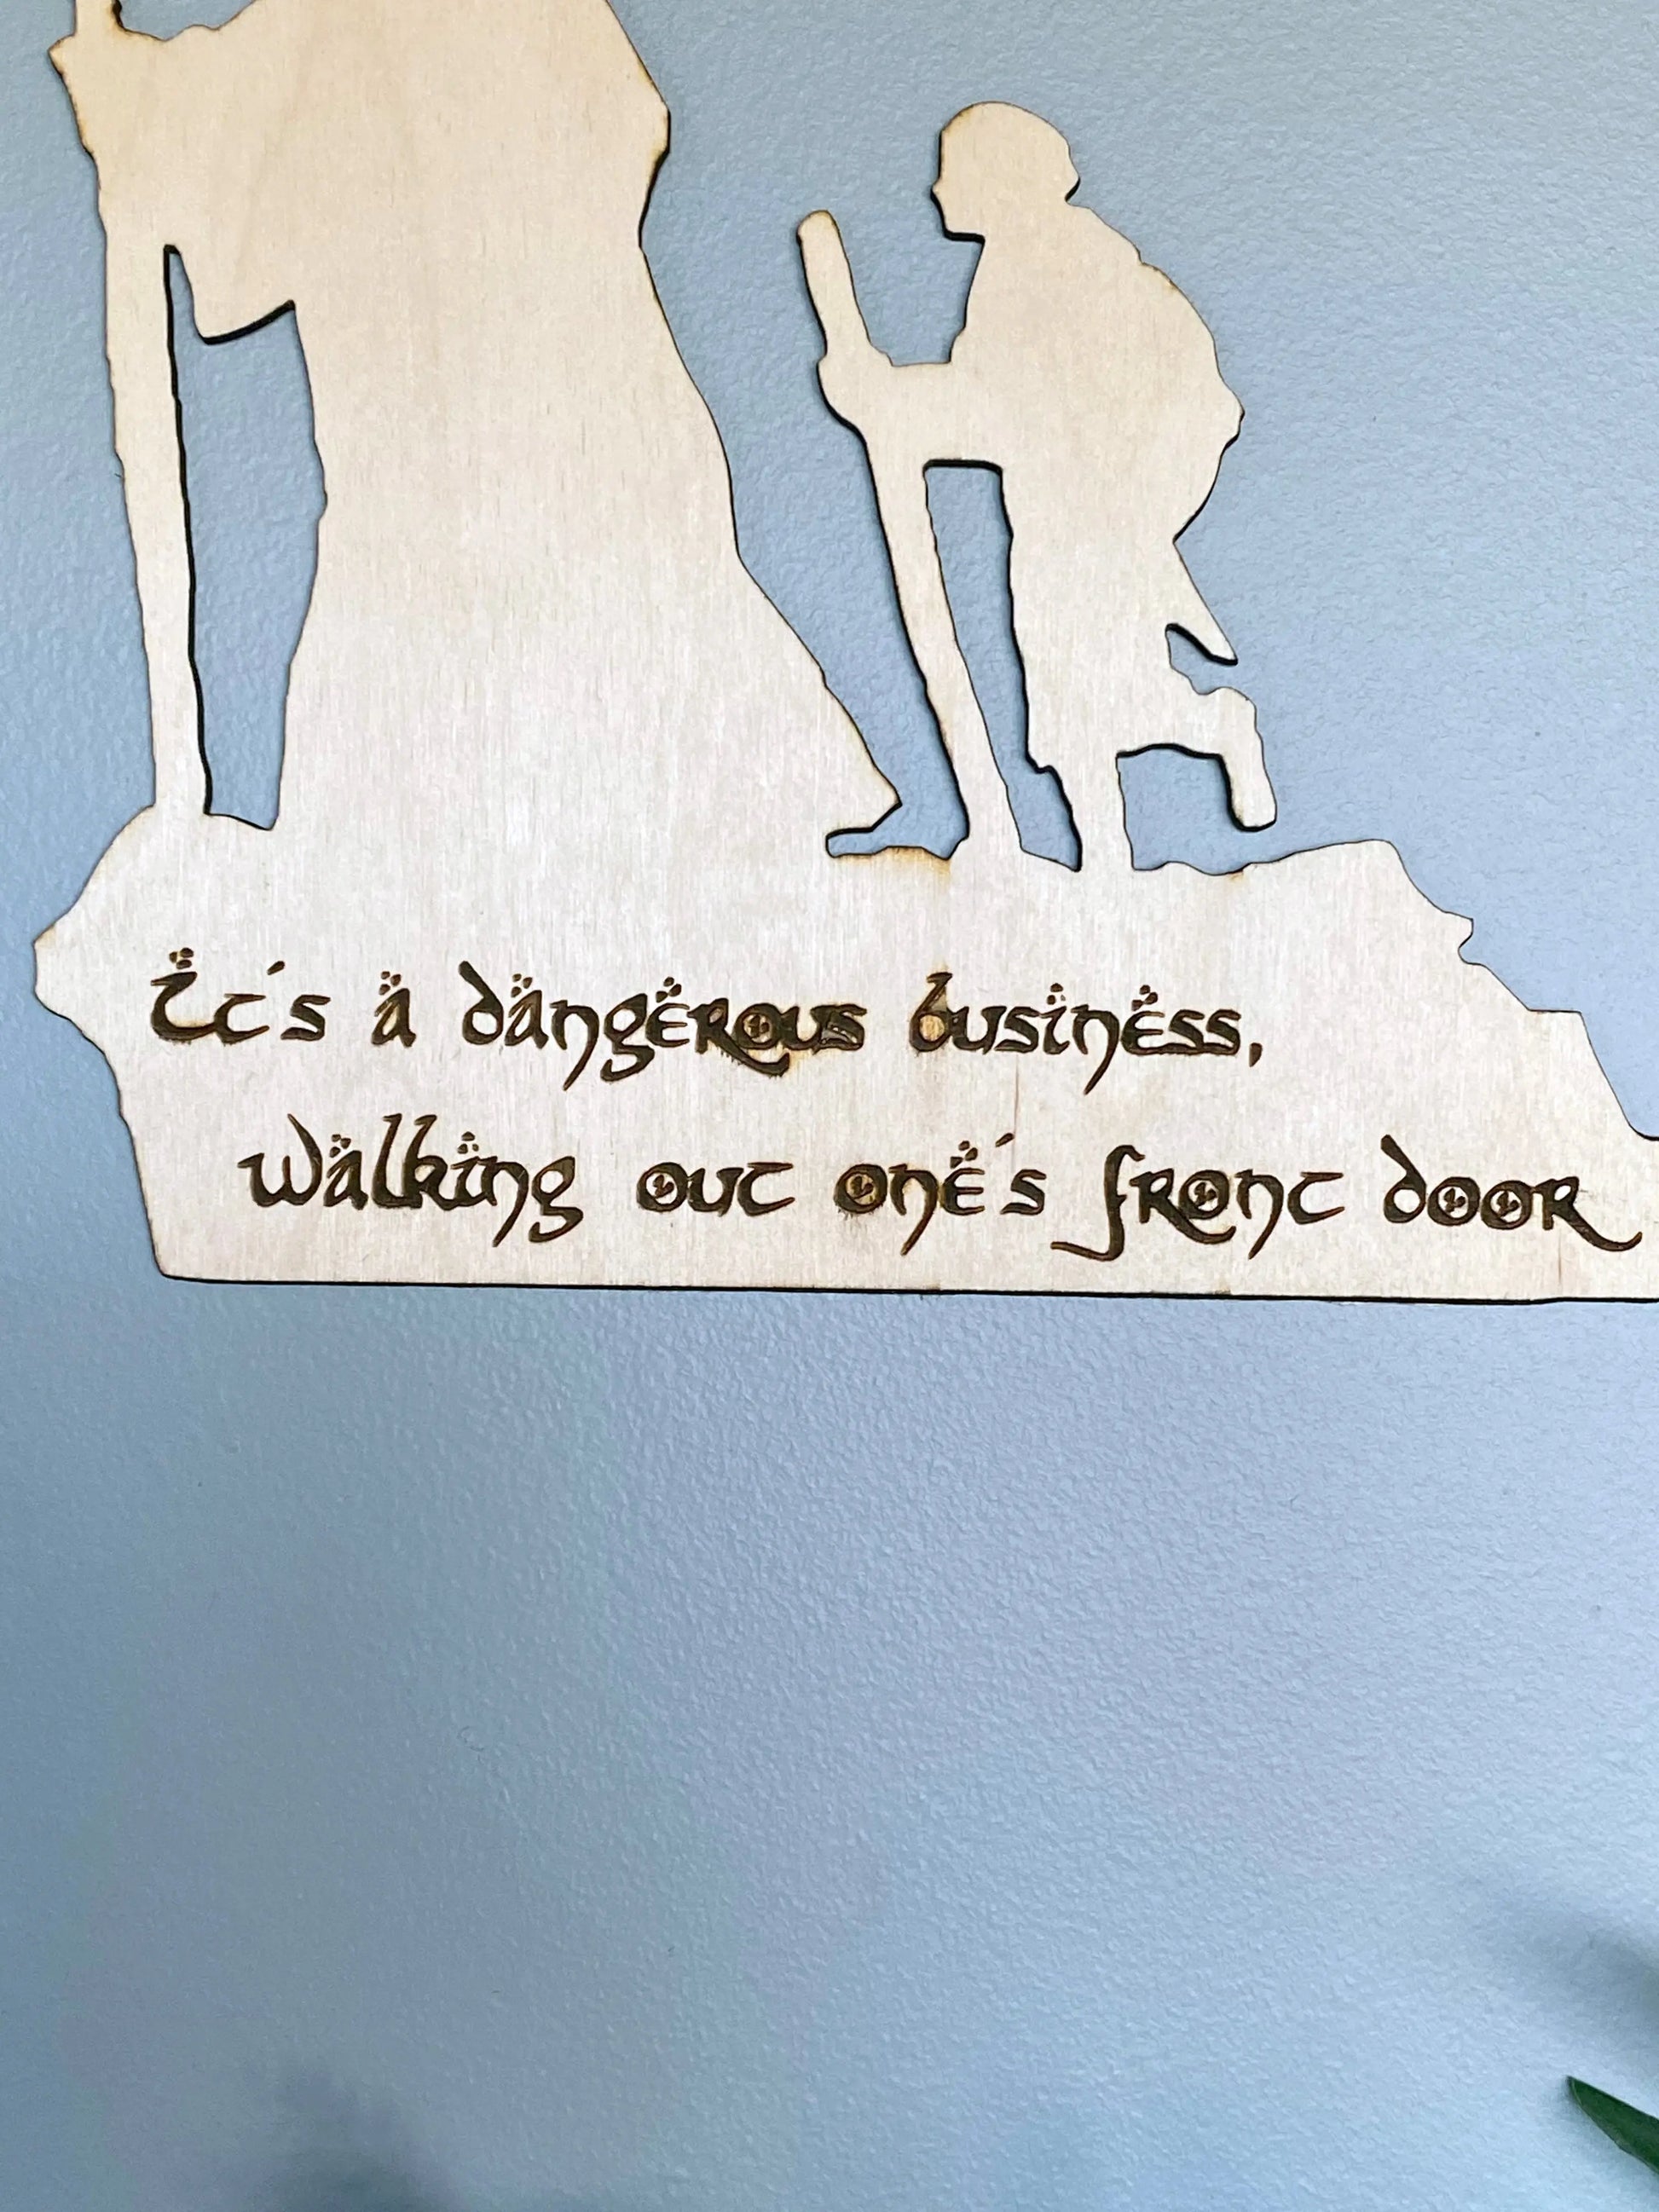 It's a dangerous business,
walking out one's front door